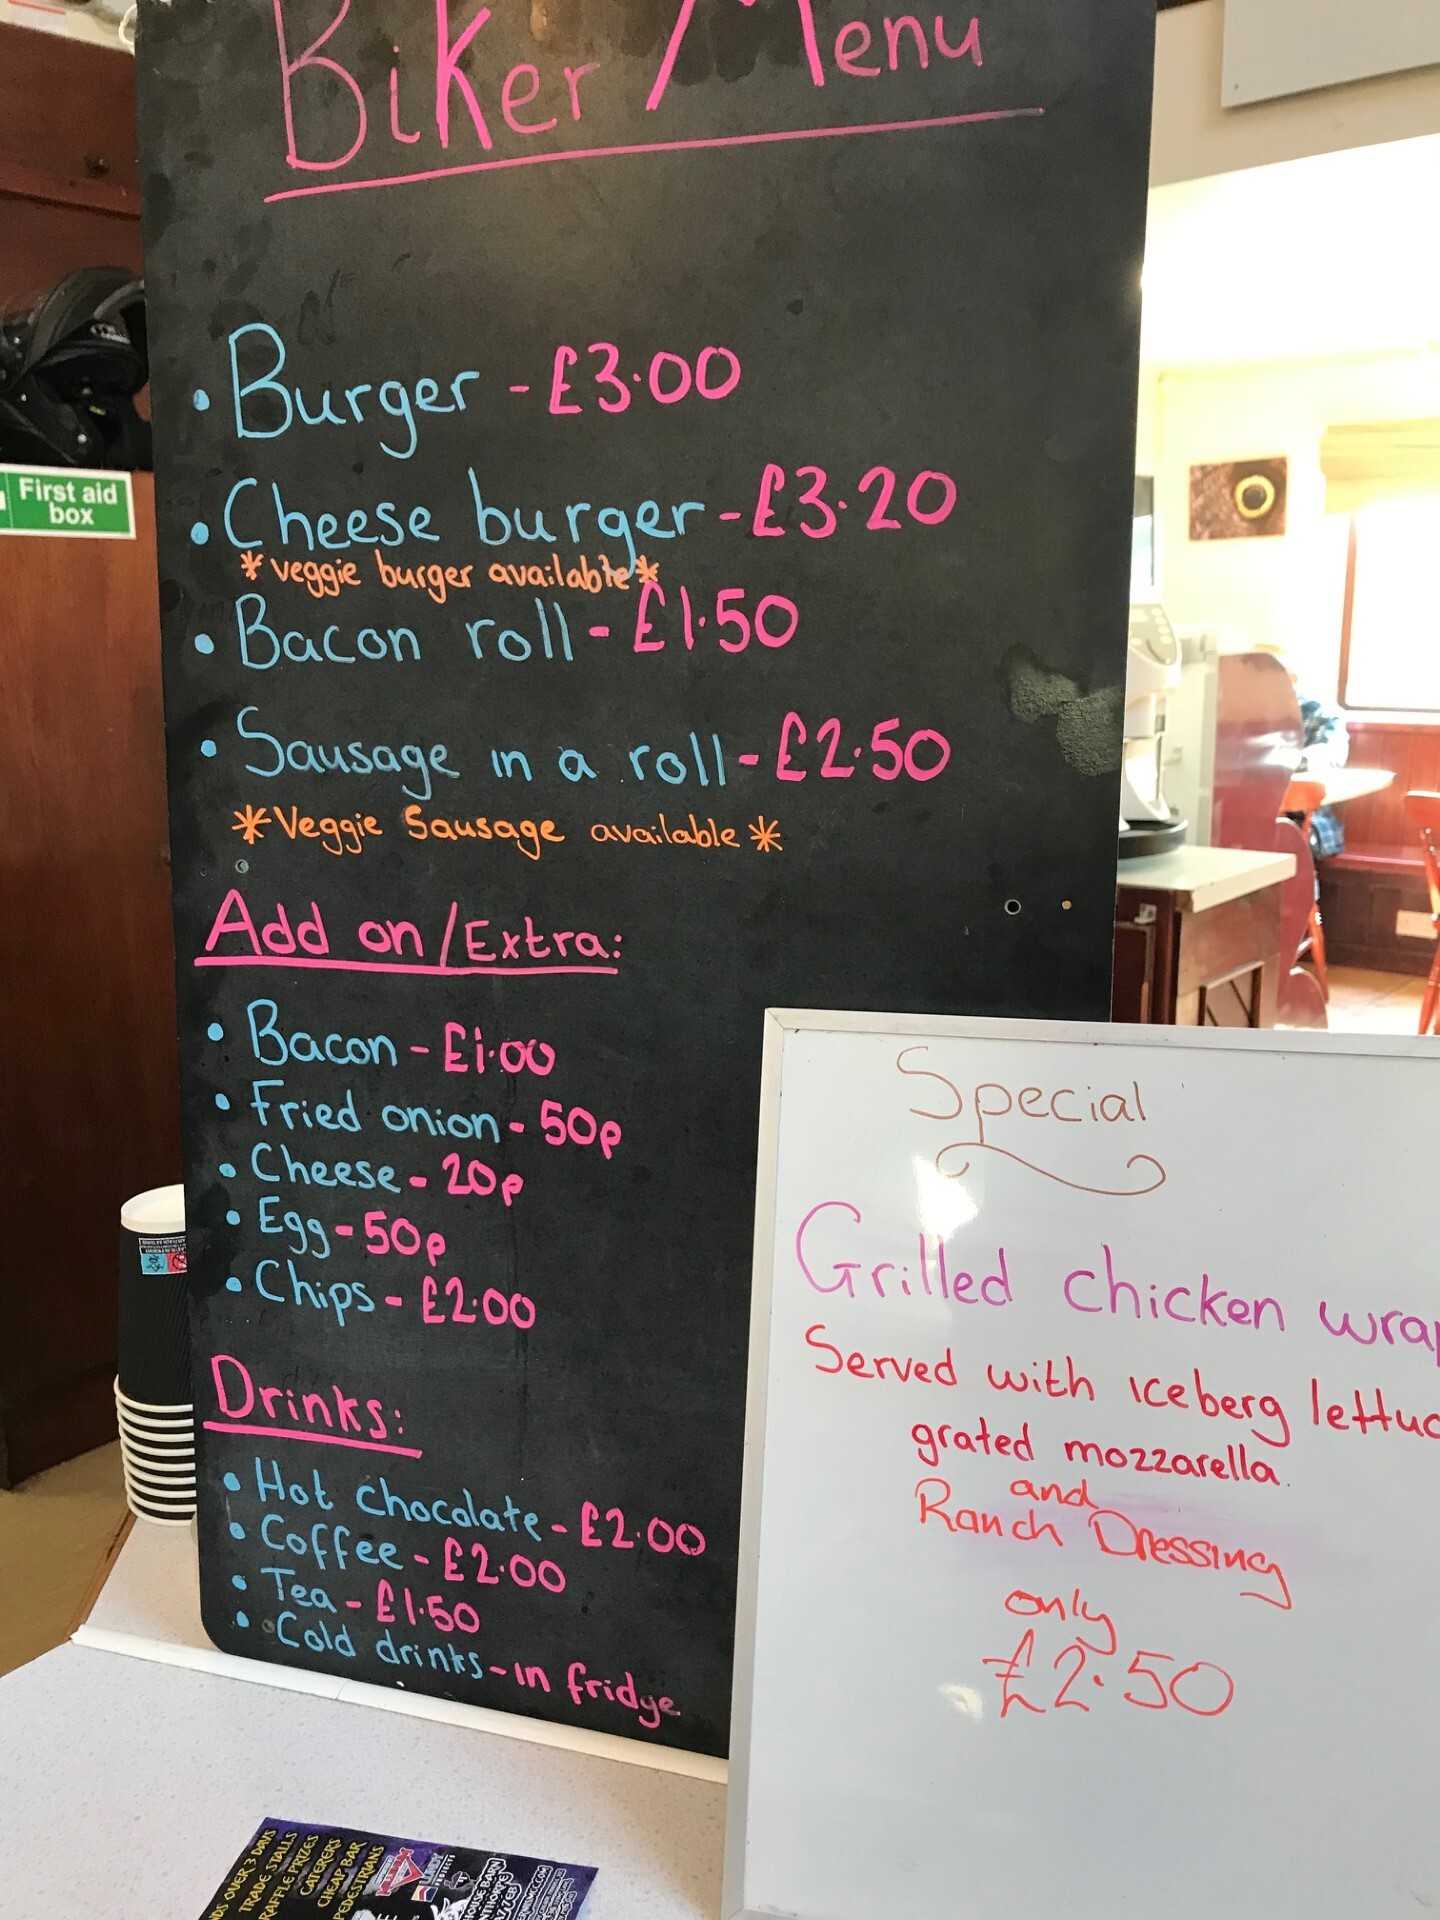 Biker Menu
• Burger - £3.00
• Cheese burger - £3.20
*veggie burger available*
• Bacon roll - £1.50
• Sausage in a roll - £2.50
*Veggie Sausage available*
Add on/Extra:
• Bacon - £1.00
• Fried onion - 50p
• Cheese - 20p
• Egg - 50p
• Chips - £2.00
Drinks:
• Hot chocolate - £2.00
• Coffee - £2.00
• Tea - £1.50
• Cold drinks - in fridge
First aid
box
Special
Grilled chicken wrap
Served with iceberg lettuc
grated mozzarella.
and
Ranch Dressing
only
£2.50
OVER 3 DAYS
TRADE STALLS
RAFFLE PRIZES
CATERERS
CHEAP BAR
PEDESTRIANS